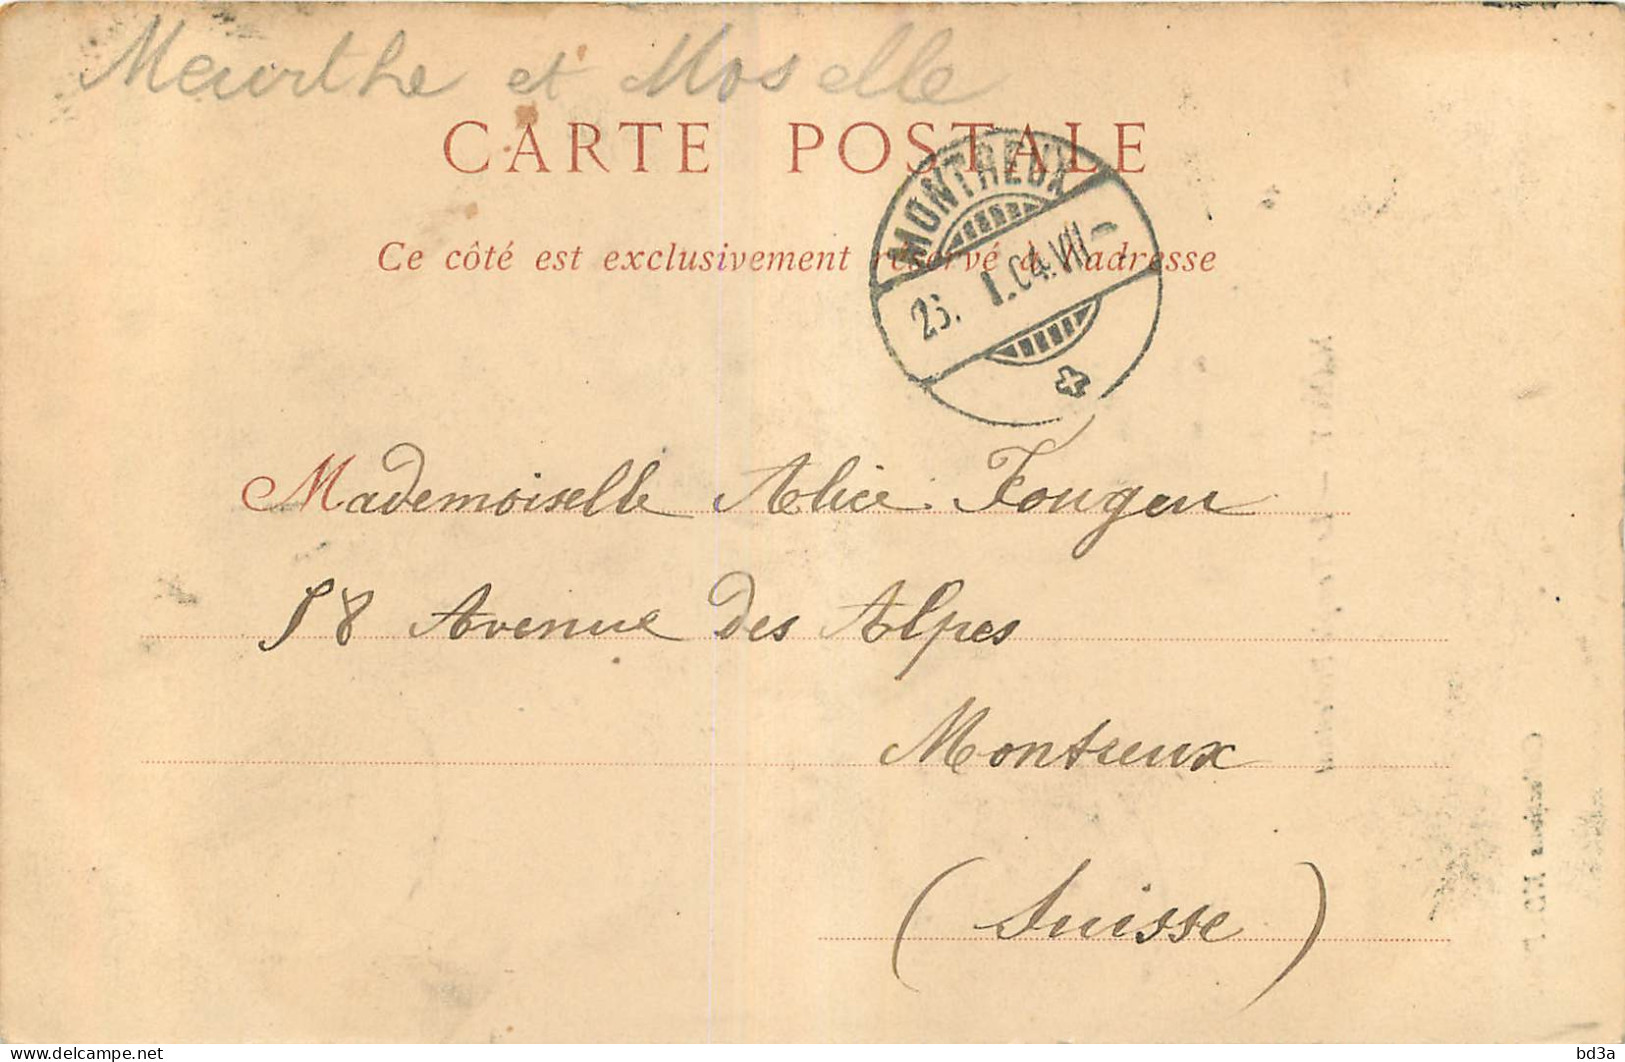 Meurthe et Moselle
CARTE POSTALE
MONTREUX
Ce côté est exclusivement réservé à l'adresse
1.04.VII
Mademoiselle Alice
58 Avenue des Alpes
Montreux
(Suisse)
www.delcampe.net
bd3a